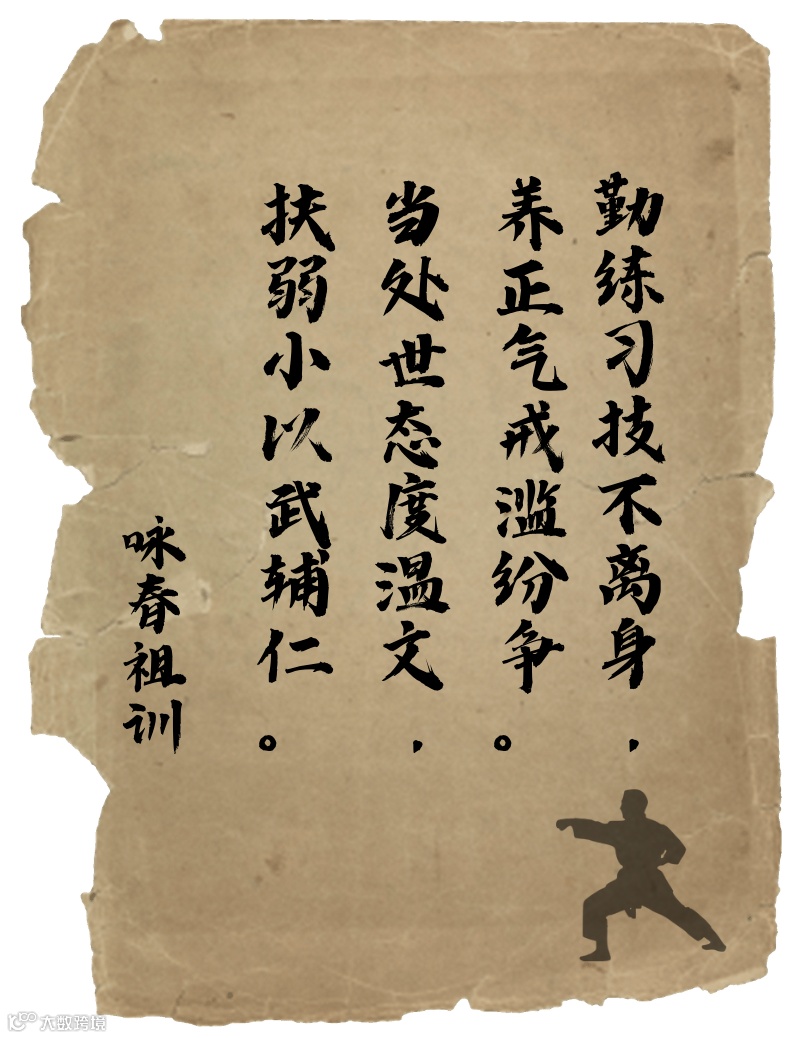 勤练习技不离身，
养正气戒滥纷争。
当处世态度温文，
扶弱小以武辅仁。
咏春祖训
大数跨境